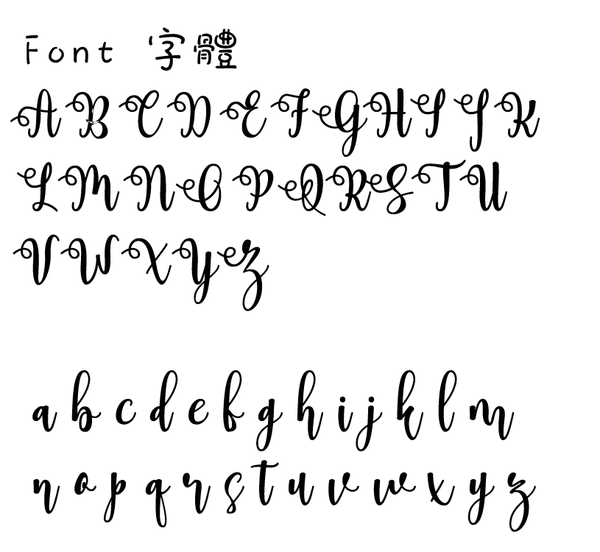 Font 字體
A B C D E F G H I J K
L M N O P Q R S T U
V W X Y Z
a b c d e f g h i j k l m
n o p q r s t u v w x y z